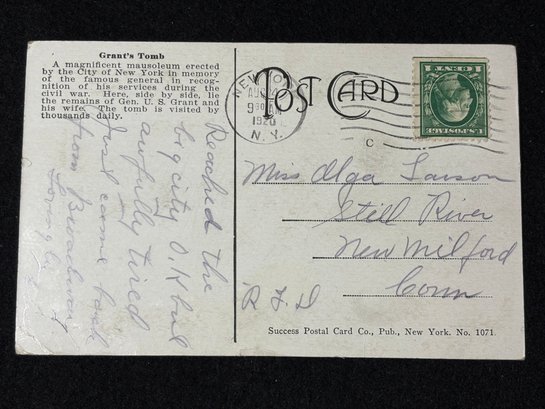 Grant's Tomb
A magnificent mausoleum erected
by the City of New York in memory
of the famous general in recog-
nition of his services during the
civil war. Here, side by side, lie
the remains of Gen. U. S. Grant and
his wife. The tomb is visited by
thousands daily.
Reached the
big city O.K but
awfully tired
Just came back
from Broadway
Loving
POST CARD
NEW YORK
930 AM
1920
N.Y.
C
U.S. POSTAGE
1 CENT 1
Miss Olga Larson
Still River
New Milford
R F D Conn
Success Postal Card Co., Pub., New York. No. 1071.